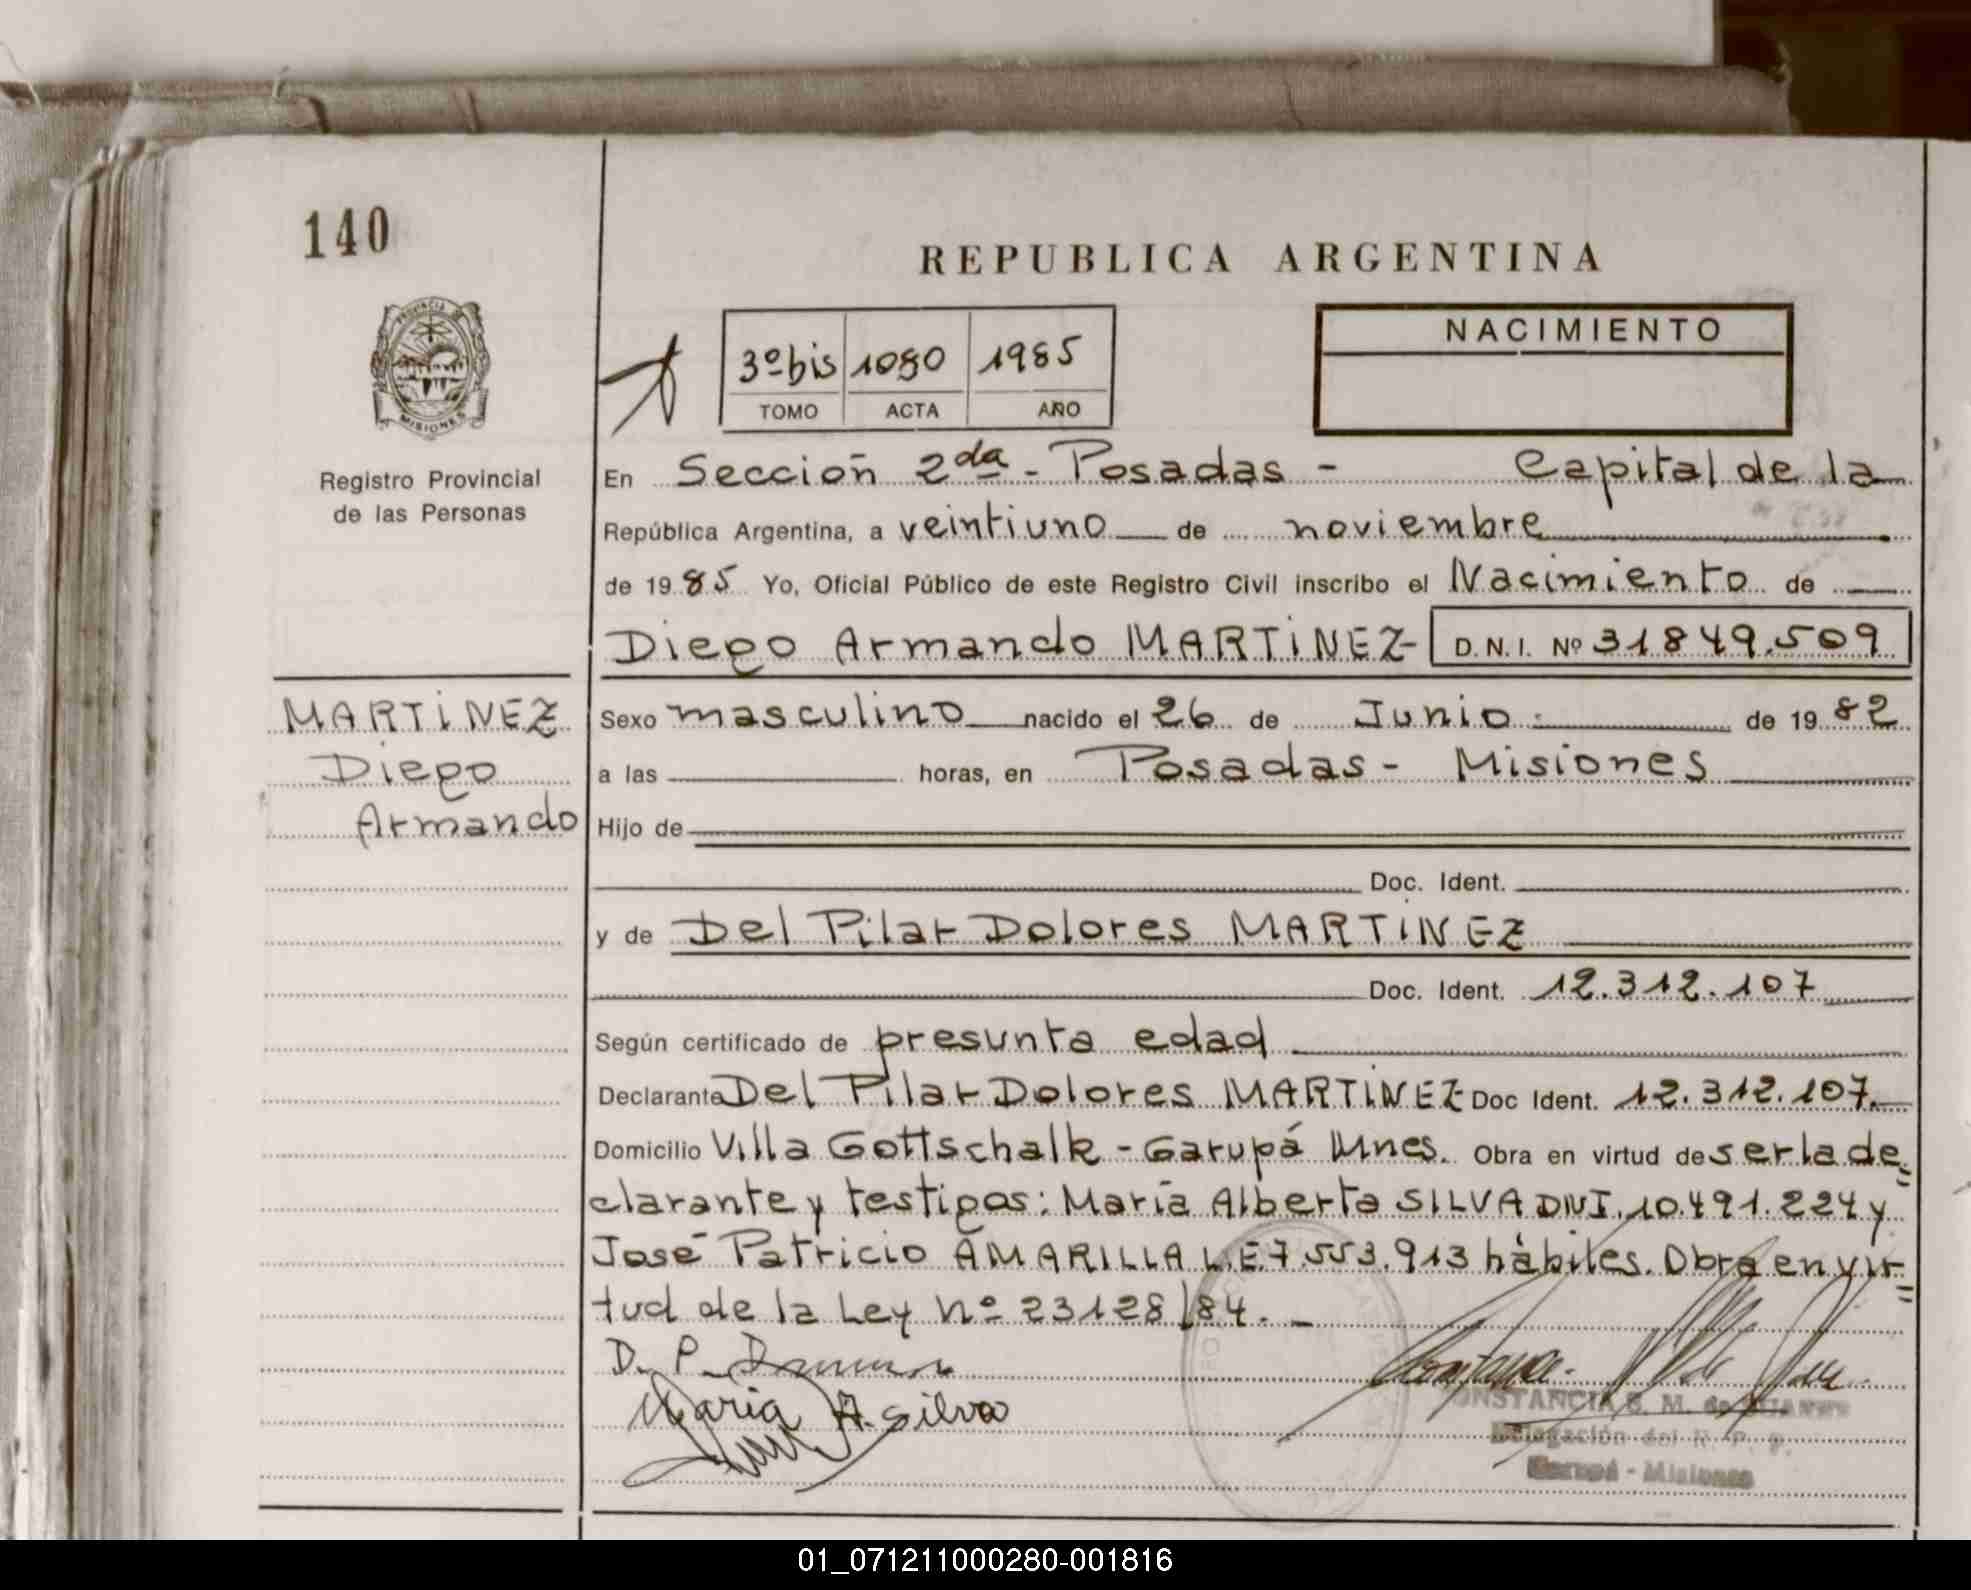 140
REPUBLICA ARGENTINA
PROVINCIA DE
MISIONES
Registro Provincial
de las Personas
3º bis 1080 1985
TOMO ACTA AÑO
NACIMIENTO
En Sección 2da - Posadas - Capital de la
República Argentina, a veintiuno de noviembre
de 1985 Yo, Oficial Público de este Registro Civil inscribo el Nacimiento de
Diego Armando MARTINEZ - D.N.I. Nº 31849.509
MARTINEZ
Diego
Armando
Sexo masculino nacido el 26 de Junio de 1982
a las horas, en Posadas - Misiones
Hijo de
Doc. Ident.
y de Del Pilar Dolores MARTINEZ
Doc. Ident. 12.312.107
Según certificado de presunta edad
Declarante Del Pilar Dolores MARTINEZ Doc Ident. 12.312.107.
Domicilio Villa Gottschalk - Garupá Mnes. Obra en virtud de ser la de=
clarante y testigos: María Alberta SILVA DNI. 10.491.224 y
José Patricio AMARILLA L.E. 7.553.913 hábiles. Obra en vir=
tud de la Ley Nº 23128/84. -
D. P.
Maria A. Silva
CONSTANCIA S. M. de
Delegación del R. P. P.
Garupá - Misiones
01_071211000280-001816